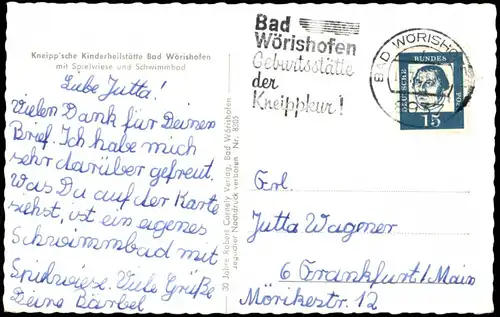 Kneipp'sche Kinderheilstätte Bad Wörishofen
mit Spielwiese und Schwimmbad
Liebe Jutta!
Vielen Dank für Deinen
Brief. Ich habe mich
sehr darüber gefreut.
Was Du auf der Karte
siehst, ist ein eigenes
Schwimmbad mit
Spielwiese. Viele Grüße
Deine Bärbel
30 Jahre Robert Cornely Verlag, Bad Wörishofen
Jeglicher Nachdruck verboten Nr. 8305
Bad
Wörishofen
Geburtsstätte
der
Kneippkur!
BAD WÖRISHOFEN
DEUTSCHE BUNDESPOST
15
Frl.
Jutta Wagener
6 Frankfurt/Main
Mörikestr. 12